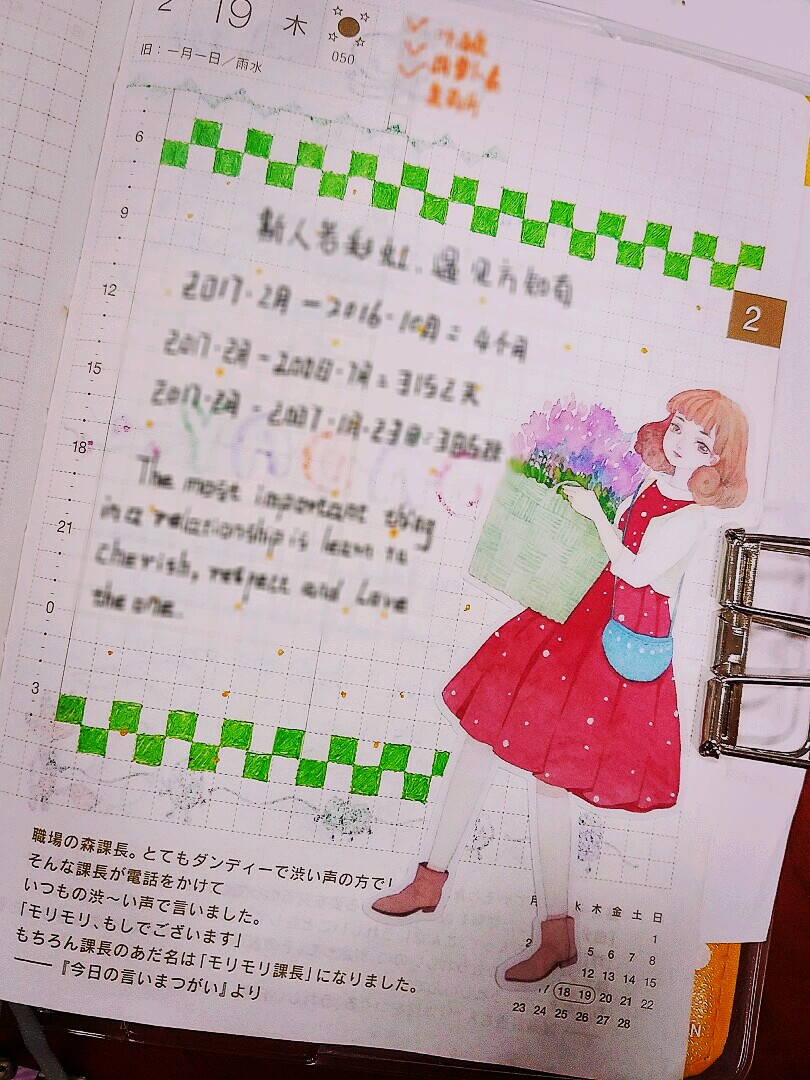 2 19 木
旧：一月一日／雨水
050
6
9
斯人若彩虹，遇见方知有
12
2017·2月－2016·10月＝4个月
15
2017·2月
3152天
2017·2月
18
The most important thing
21
in a relationship is learn to
cherish, respect and Love
0
the one.
3
2
職場の森課長。とてもダンディーで渋い声の方で
そんな課長が電話をかけて
いつもの渋〜い声で言いました。
「モリモリ、もしでございます」
もちろん課長のあだ名は「モリモリ課長」になりました。
――『今日の言いまつがい』より
月 木 金 土 日
1
5 6 7 8
12 13 14 15
17 18 19 20 21 22
23 24 25 26 27 28